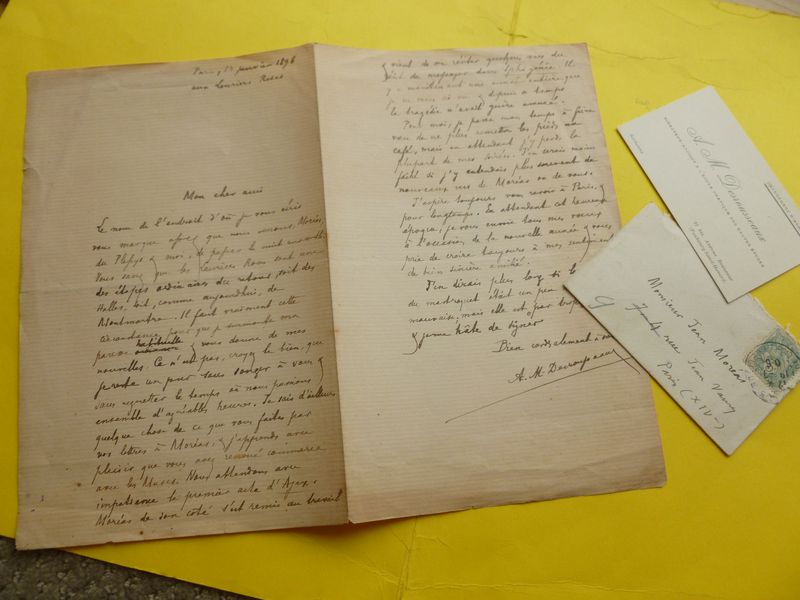 Paris, 12 janvier 1896
aux Lauriers Roses
Mon cher ami
Le nom de l'endroit d'où je vous écris
vous marque assez que nous avons, Moréas,
du Plessys & moi, passé la nuit ensemble.
Vous savez que les Lauriers Roses sont une
des étapes ordinaires du retour, soit des
Halles, soit, comme aujourd'hui, de
Montmartre. Il faut vraiment cette
circonstance pour que je surmonte ma
paresse habituelle & vous donne de mes
nouvelles. Ce n'est pas, croyez le bien, que
je reste un jour sans songer à vous &
sans regretter le temps où nous passions
ensemble d'agréables heures. Je sais d'ailleurs
quelque chose de ce que vous faites par
vos lettres à Moréas, & j'apprends avec
plaisir que vous avez renoué commerce
avec les Muses. Nous attendons avec
impatience le premier acte d'Ajax.
Moréas de son côté s'est remis au travail
& vient de me réciter quelques vers du
récit du messager dans Iphigénie. Il
y a maintenant une année entière que
& depuis ce temps
la tragédie n'avait guère avancé.
Pour moi, je passe mon temps à faire
vœu de ne plus remettre les pieds au
café, mais en attendant j'y perds la
plupart de mes soirées. J'en serais moins
fâché si j'y entendais plus souvent de
nouveaux vers de Moréas ou de vous.
J'aspire toujours vous revoir à Paris, &
pour longtemps. En attendant cet heureux
je vous envoie tous mes vœux
à l'occasion de la nouvelle année & vous
prie de croire toujours à mes sentiments
de bien sincère amitié.
J'en dirais plus long si la
du mastroquet était un peu
mauvaise; mais elle est par trop
& j'ai hâte de signer
Bien cordialement à vous
A. M. Desrousseaux
A. M. Desrousseaux
Monsieur Jean Moréas
rue Jean
Paris
(XIV)